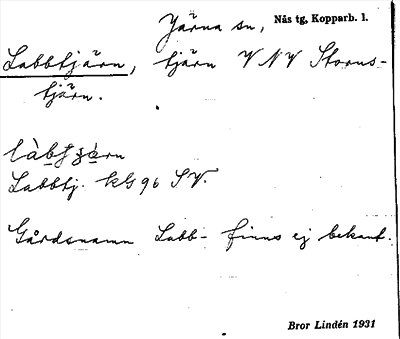 Järna sn, Nås tg, Kopparb. l.
Labbtjärn, tjärn VNV Storus-
tjärn.
Labbtj. kbg 96 SV.
Gårdsnamn Labb- finns ej bekant.
Bror Lindén 1931